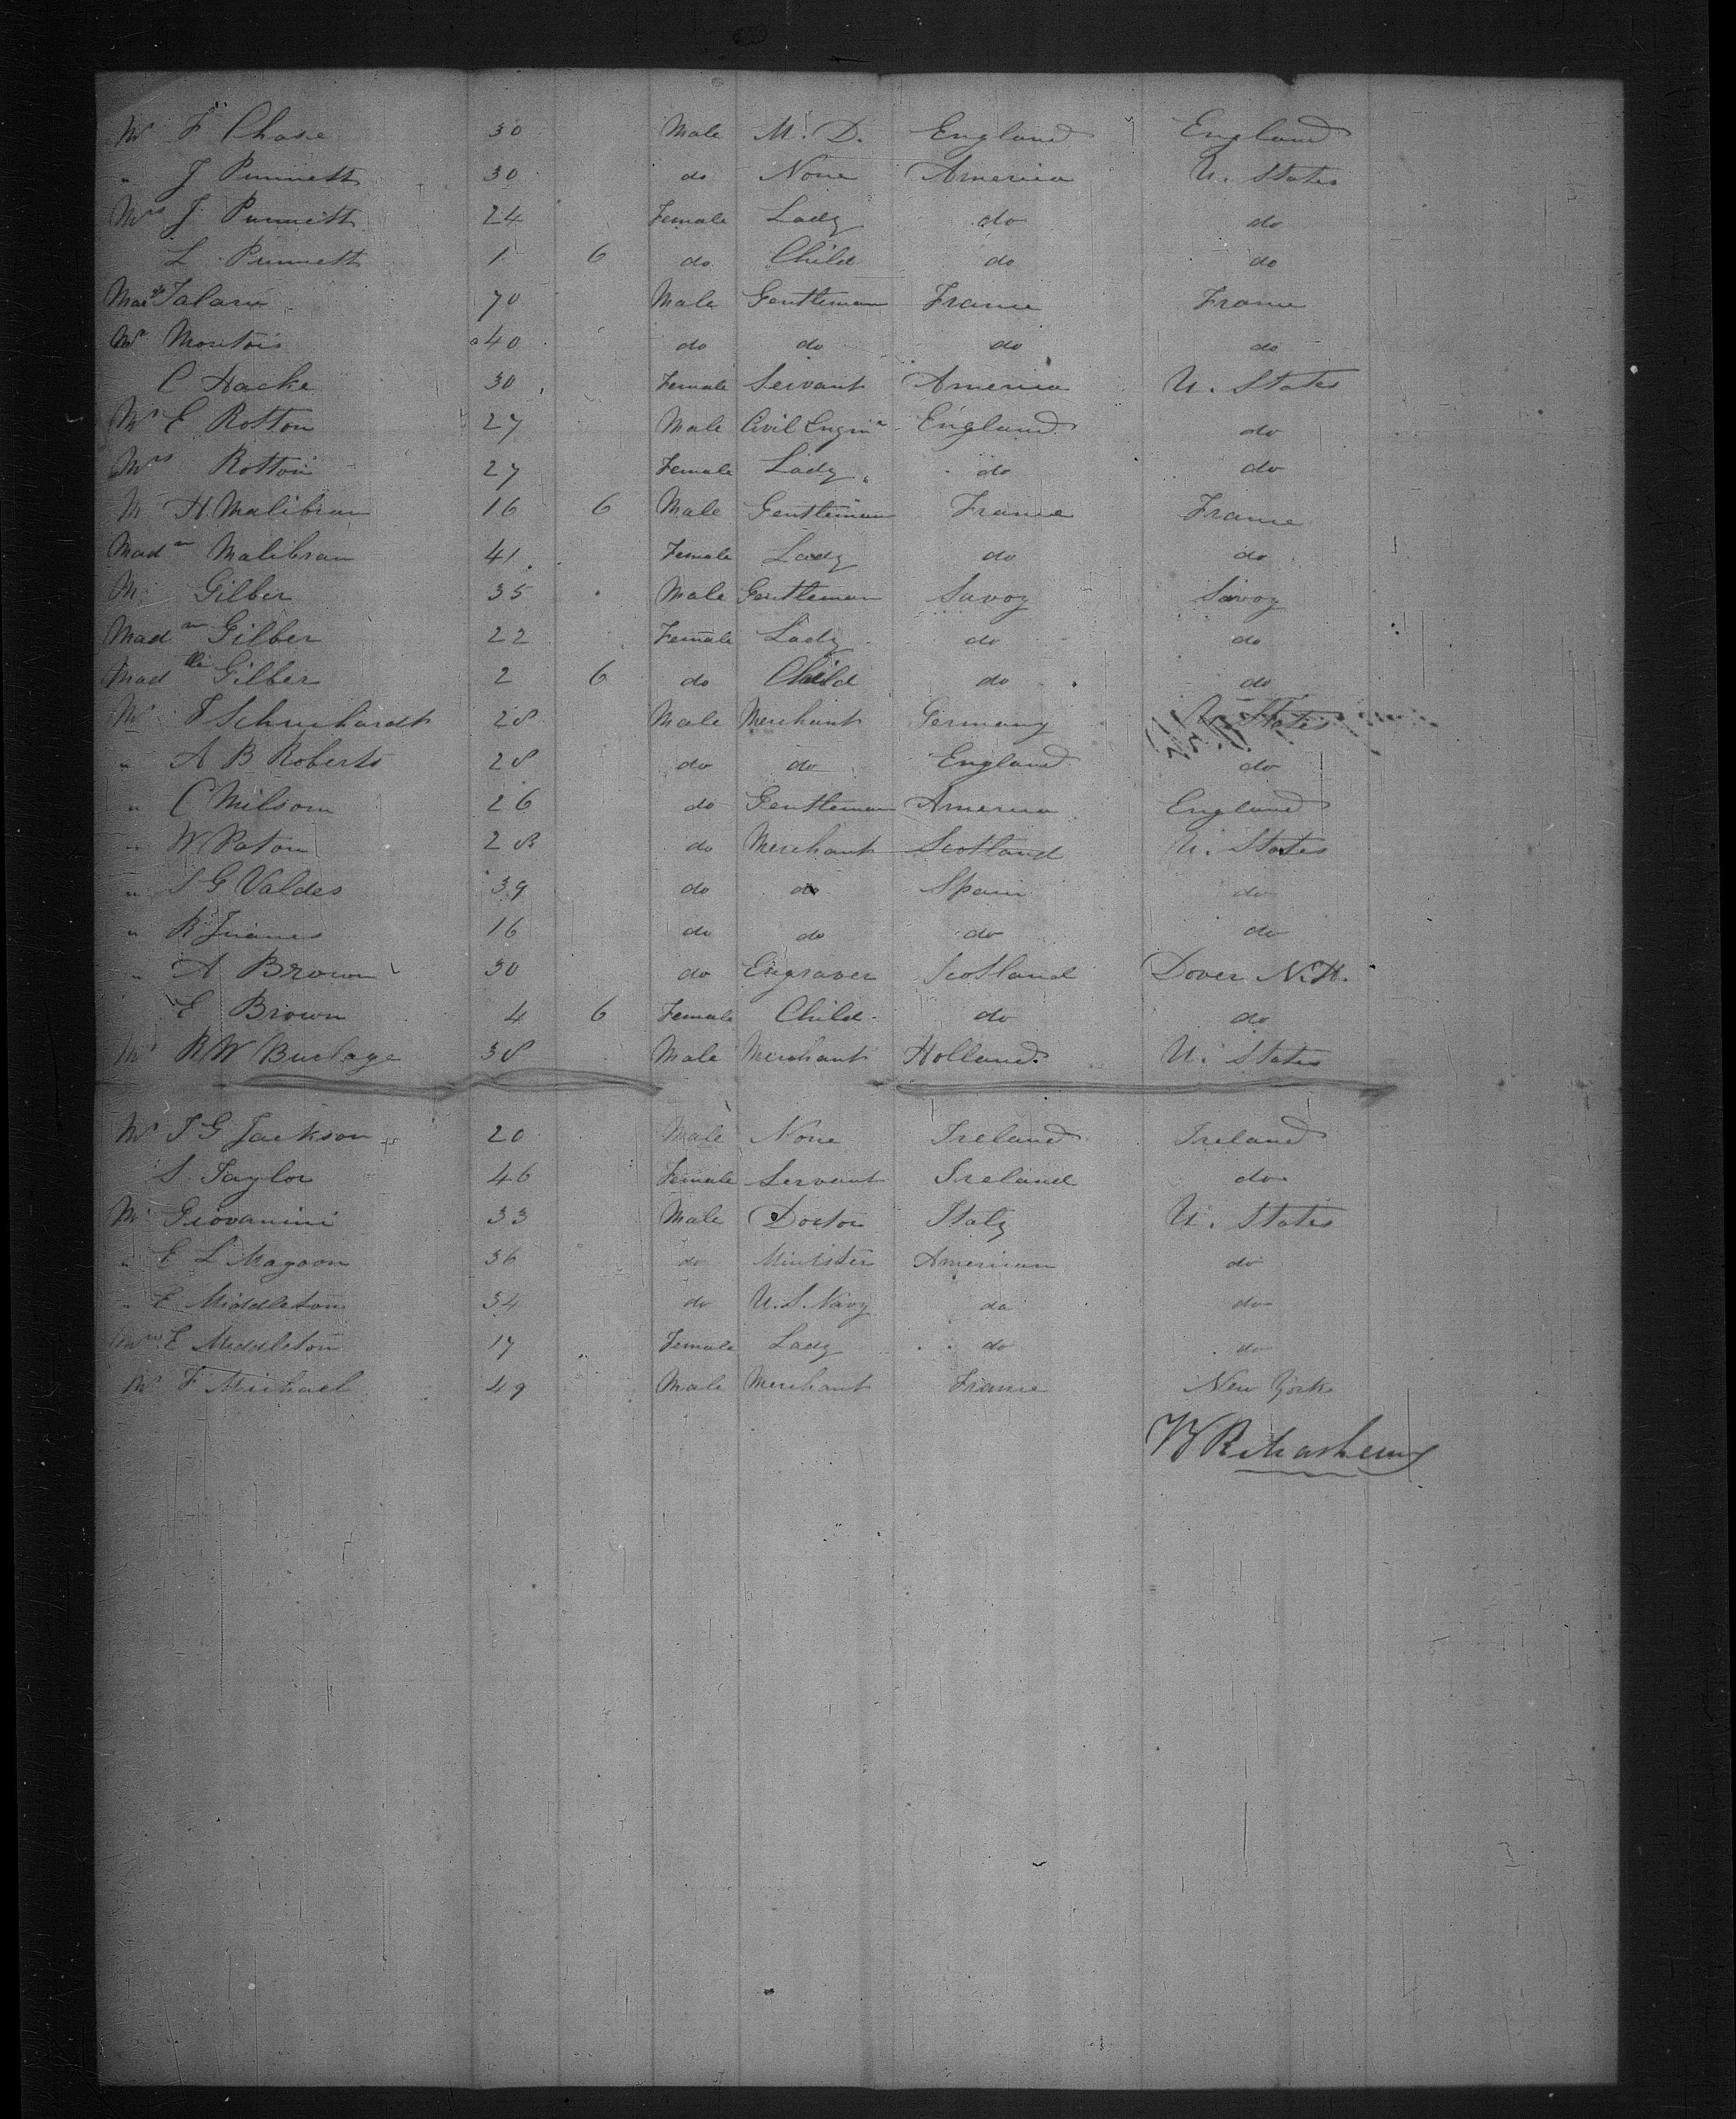 Mr F Chase 30 Male M. D. England England
" J Punnett 30 do None America U. States
Mrs J Punnett 24 Female Lady do do
L Punnett 1 6 do Child do do
Talaru 70 Male Gentleman France France
Mr Montois 40 do do do do
C Hacke 30 Female Servant America U. States
Mr E Rotton 27 Male Civil Enginr England do
Mrs Rotton 27 Female Lady do do
M H Malibran 16 6 Male Gentleman France France
Madm Malibran 41 Female Lady do do
M Gilber 35 Male Gentleman Savoy Savoy
Madm Gilber 22 Female Lady do do
Madlle Gilber 2 6 do Child do do
Mr F Schuchardt 28 Male Merchant Germany U. States
" A B Roberts 28 do do England do
" C Milsom 26 do Gentleman America England
" W Paton 28 do Merchant Scotland U. States
" S G Valdes 39 do do Spain do
" R 16 do do do do
" A Brown 30 do Engraver Scotland Dover N.H.
E Brown 4 6 Female Child do do
Mr R W Burlage 38 Male Merchant Holland U. States
Mr T G Jackson 20 Male None Ireland Ireland
S. Taylor 46 Female Servant Ireland do
Mr Giovanini 33 Male Doctor Italy U. States
" E L Magoon 36 do Minister American do
" E Middleton 34 do U. S. Navy do do
Mrs E Middleton 17 Female Lady do do
Mr F Michael 49 Male Merchant France New York